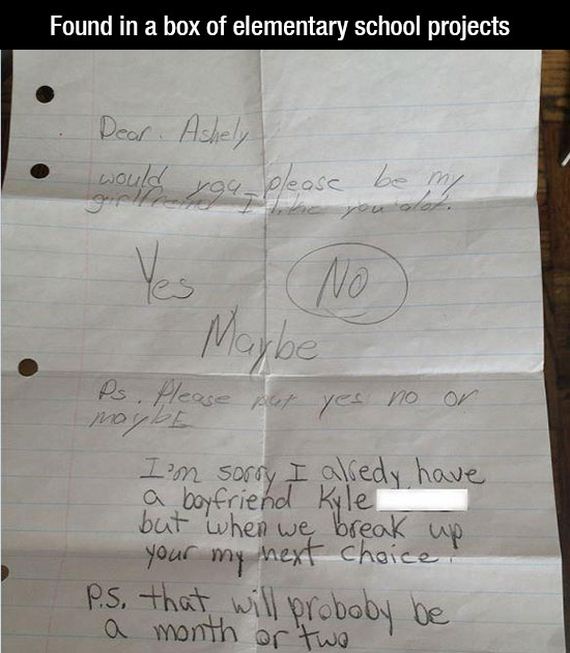 Found in a box of elementary school projects
Dear. Ashely
would you please be my
girlfriend I like you alot.
Yes NO
Maybe
Ps. Please put yes no or
maybE
I'm sorry I alredy have
a boyfriend Kyle
but when we break up
your my next choice.
P.S. that will proboby be
a month or two